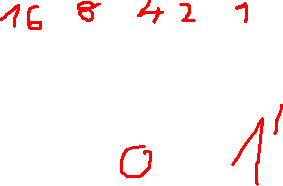 16 8 4 2 1
0 1'